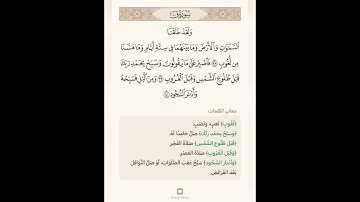 سُورَةُ قٓ
وَلَقَدْ خَلَقْنَا
ٱلسَّمَٰوَٰتِ وَٱلْأَرْضَ وَمَا بَيْنَهُمَا فِي سِتَّةِ أَيَّامٍ وَمَا مَسَّنَا
مِن لُّغُوبٍ ۝٣٨ فَٱصْبِرْ عَلَىٰ مَا يَقُولُونَ وَسَبِّحْ بِحَمْدِ رَبِّكَ
قَبْلَ طُلُوعِ ٱلشَّمْسِ وَقَبْلَ ٱلْغُرُوبِ ۝٣٩ وَمِنَ ٱلَّيْلِ فَسَبِّحْهُ
وَأَدْبَٰرَ ٱلسُّجُودِ ۝٤٠
معاني الكلمات
﴿لُغُوبٍ﴾ تَعَبٍ، وَنَصَبٍ.
﴿وَسَبِّحْ بِحَمْدِ رَبِّكَ﴾ صَلِّ حَامِدًا لَهُ.
﴿قَبْلَ طُلُوعِ الشَّمْسِ﴾ صَلَاةَ الفَجْرِ.
﴿وَقَبْلَ الْغُرُوبِ﴾ صَلَاةَ العَصْرِ.
﴿وَأَدْبَارَ السُّجُودِ﴾ سَبِّحْ عَقِبَ الصَّلَوَاتِ، أَوْ صَلِّ النَّوَافِلَ
بَعْدَ الفَرَائِضِ.